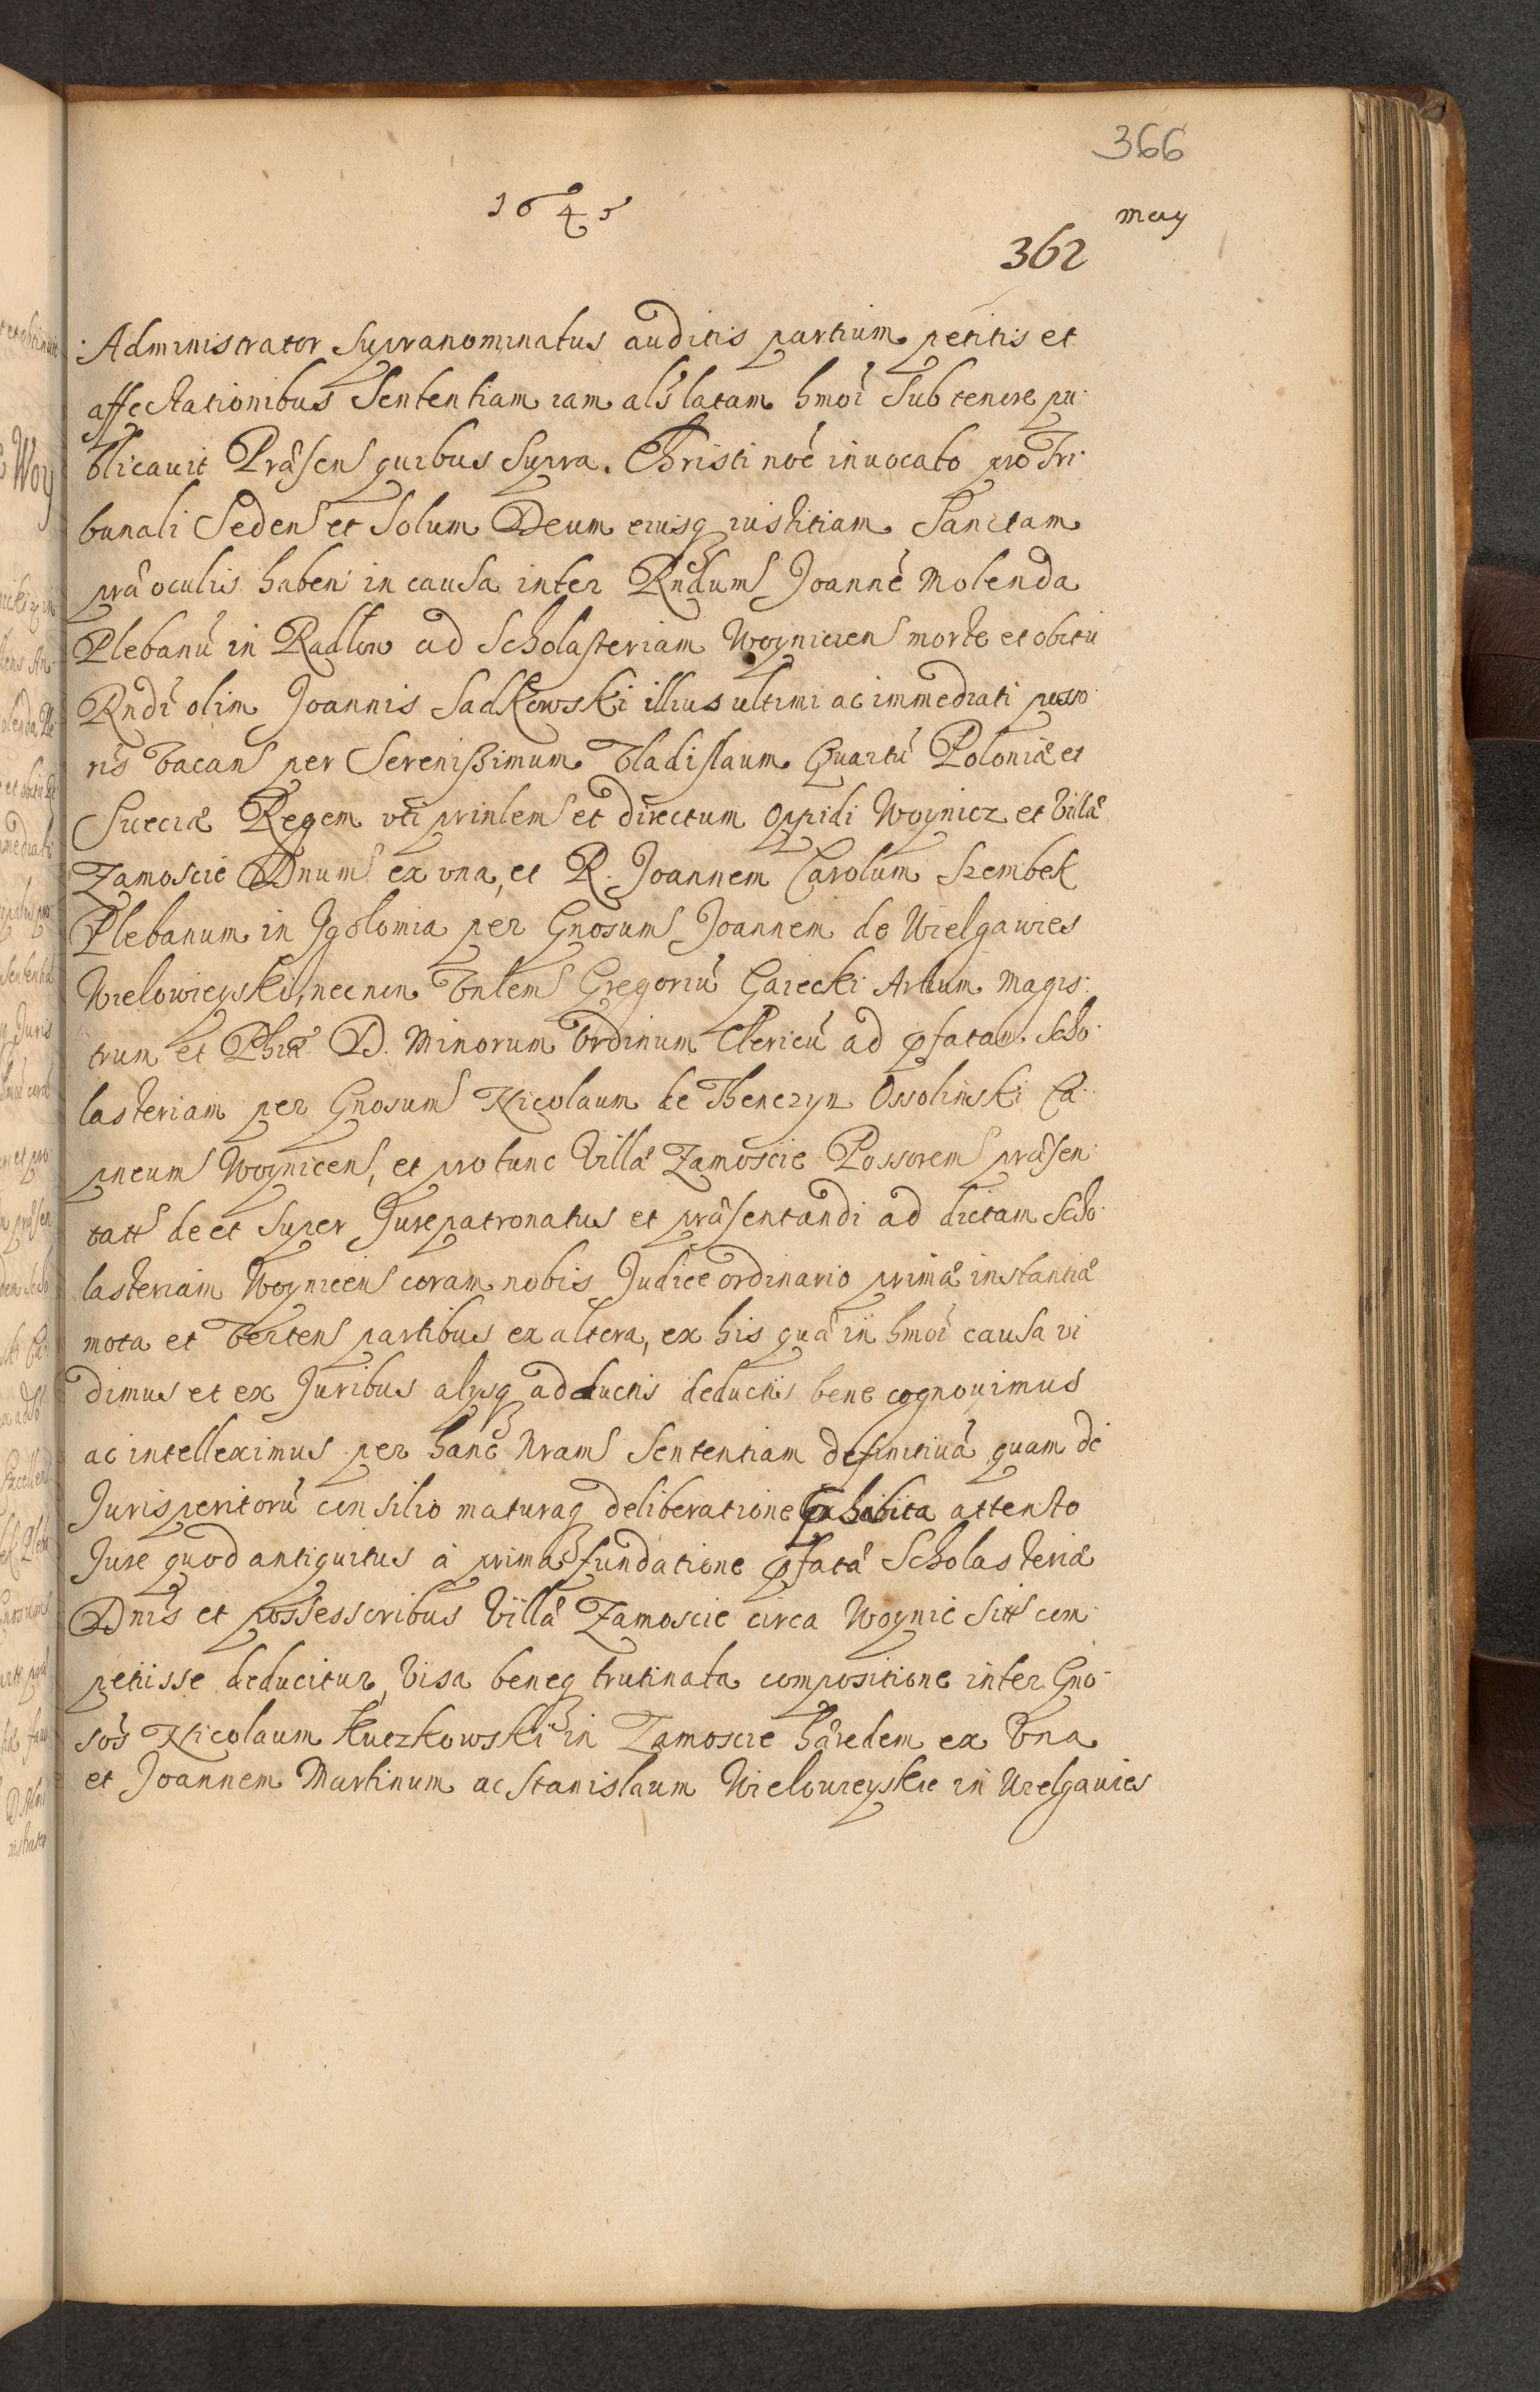 366
1645
May
362
Administrator supranominatus auditis partium petitis et
affectationibus sententiam iam als latam hmoi sub tenore pu
blicauit Præsen quibus supra. Christi noē inuocato pro Tri
bunali Seden et solum Deum eiusq iustitiam Sanctam
præ oculis haben in causa inter Rndum Joannē Molenda
Plebanū in Radlow ad Scholasteriam Woynicien morte et obitu
Rndi olim Joannis Sadkowski illius ultimi ac immediati posso
ris vacan per Serenissimum Vladislaum Quartū Poloniæ et
Sueciæ Regem uti prinlem et directum oppidi Woynicz et Villæ
Zamoscie Dnum ex vna, et R. Joannem Carolum Szembek
Plebanum in Igolomia per Gnosum Joannem de Wielgawies
Wielowieyski, necnon Vnlem Gregoriū Gaiecki Artium Magis
trum et Phiæ D. Minorum Ordinum Clericū ad pfatam Scho
lasteriam per Gnosum Nicolaum de Thenczyn Ossolinski Ca
pneum Woynicen, et pro tunc Villæ Zamoscie Possorem præsen
tatt de et super Jurepatronatus et præsentandi ad dictam Scho
lasteriam Woynicen coram nobis Judice ordinario primæ instantiæ
mota et verten partibus ex altera, ex his quæ in hmoi causa vi
dimus et ex Juribus alysq adductis deductis bene cognouimus
ac intelleximus per hanc Nram Sententiam definitiuā quam de
Jurisperitorū consilio maturaq deliberatione phabita attento
Jure quod antiquitus à prima fundatione pfatæ Scholasteriæ
Dnis et possessoribus Villæ Zamoscie circa Woynic sitt com
petiisse deducitur, Visa beneq trutinata compositione inter Gno
sos Nicolaum Kuczkowski in Zamoscie hæredem ex Vna
et Joannem Martinum ac Stanislaum Wielowieyskie in Wielgawies